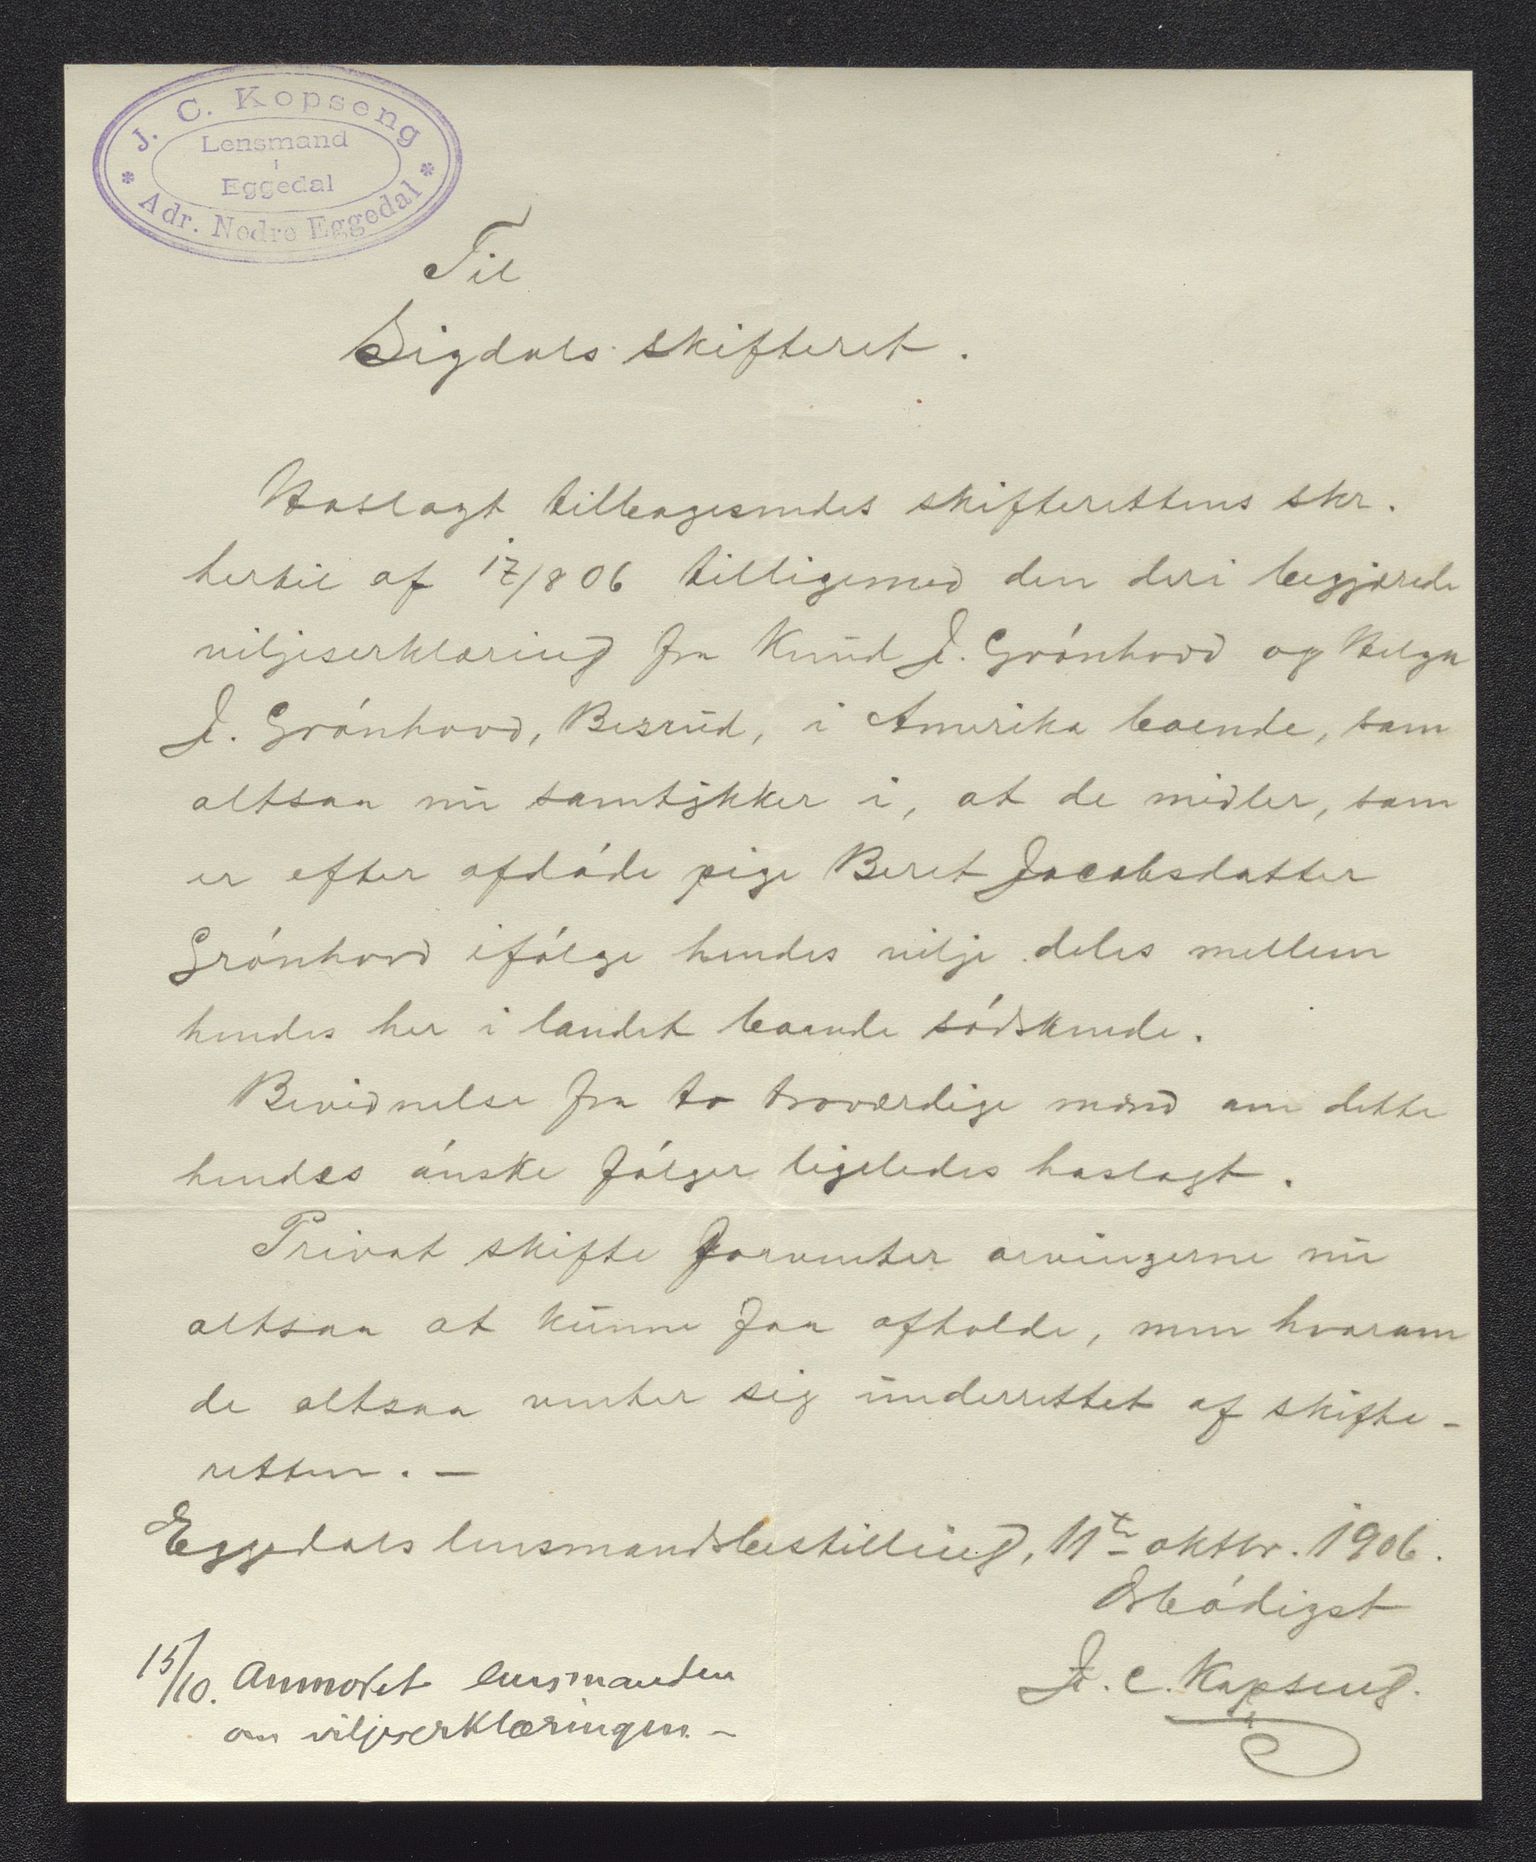 J. C. Kopseng
Lensmand
i
Eggedal
Adr. Nedre Eggedal
Til
Sigdals skifteret.
Hoslagt tilbagesendes skifterettens skr.
hertil af 17/8 06 tilligemed den deri begjærede
viljeserklæring fra Knud J. Grönhovd og Helga
J. Grönhovd, Besrud, i Amerika boende, som
altsaa nu samtykker i, at de midler, som
er efter afdöde pige Beret Jacobsdatter
Grönhovd ifölge hendes vilje deles mellem
hendes her i landet boende södskende.
Bevidnelse fra to troværdige mænd om dette
hendes önske fölger ligeledes hoslagt.
Privat skifte forventer arvingerne nu
altsaa at kunne faa afholde, men hvorom
de altsaa venter sig underrettet af skifte-
retten. —
Eggedals lensmandsbestilling, 11te oktbr. 1906.
Ærbödigst
J. C. Kopseng.
15/10. Anmodet lensmanden
om viljeserklæringen. —